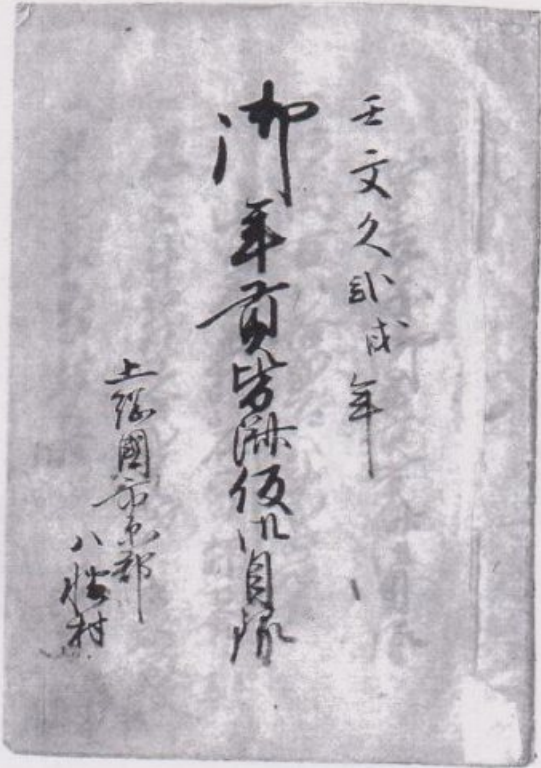 壬文久弐戌年
御年貢皆済仮御目録
上総國市原郡
八幡村